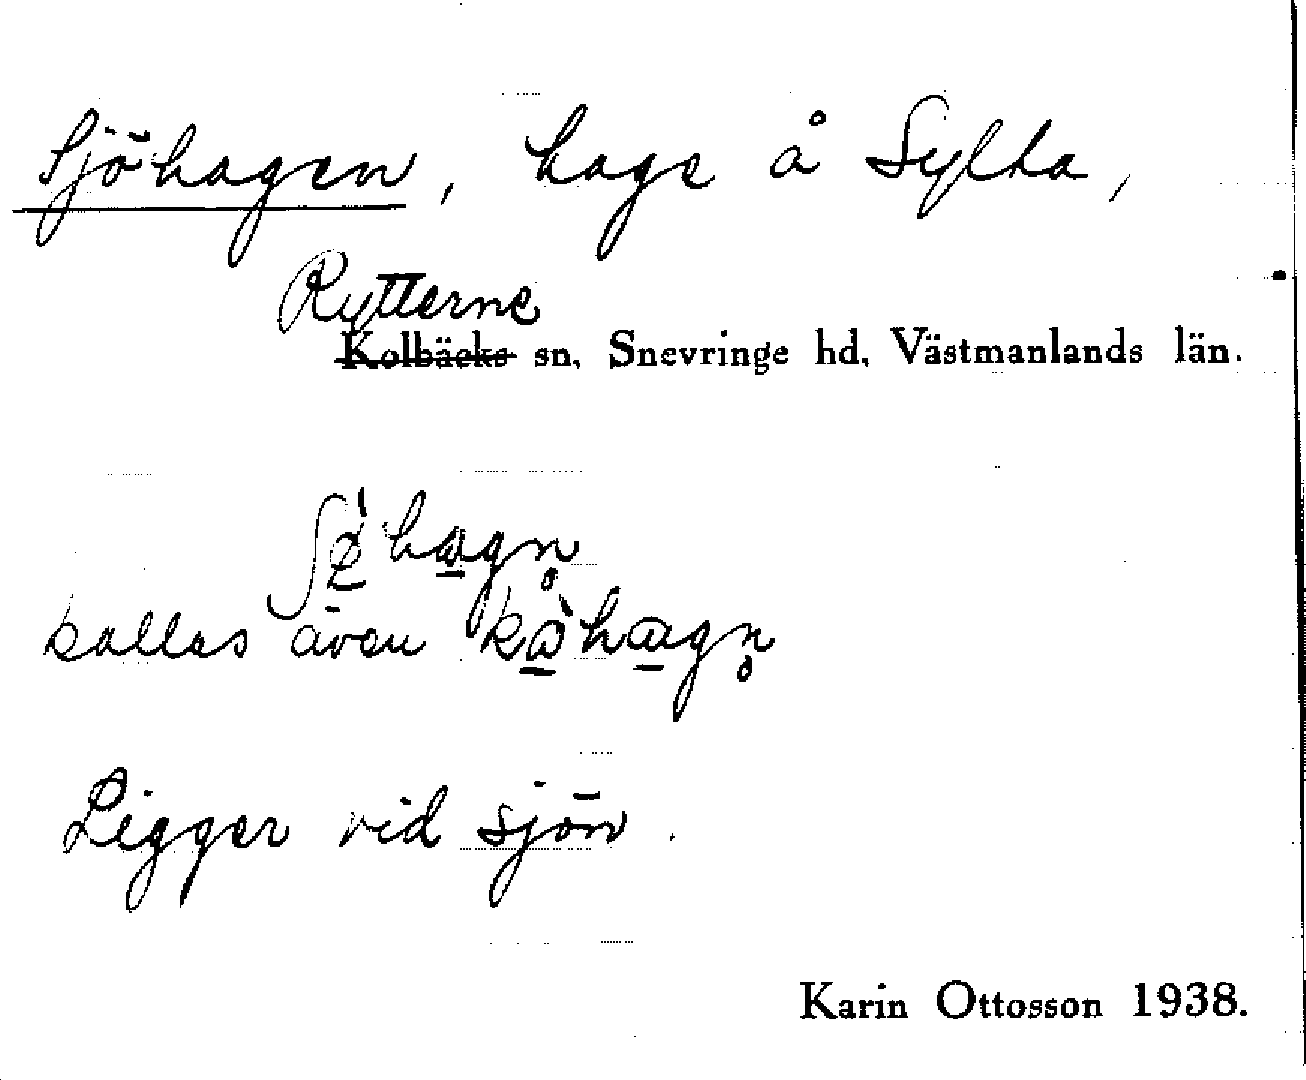 Sjöhagen, hage å Sylta,
Rytterne
Kolbäcks sn, Snevringe hd, Västmanlands län.
kallas även
Ligger vid sjön.
Karin Ottosson 1938.